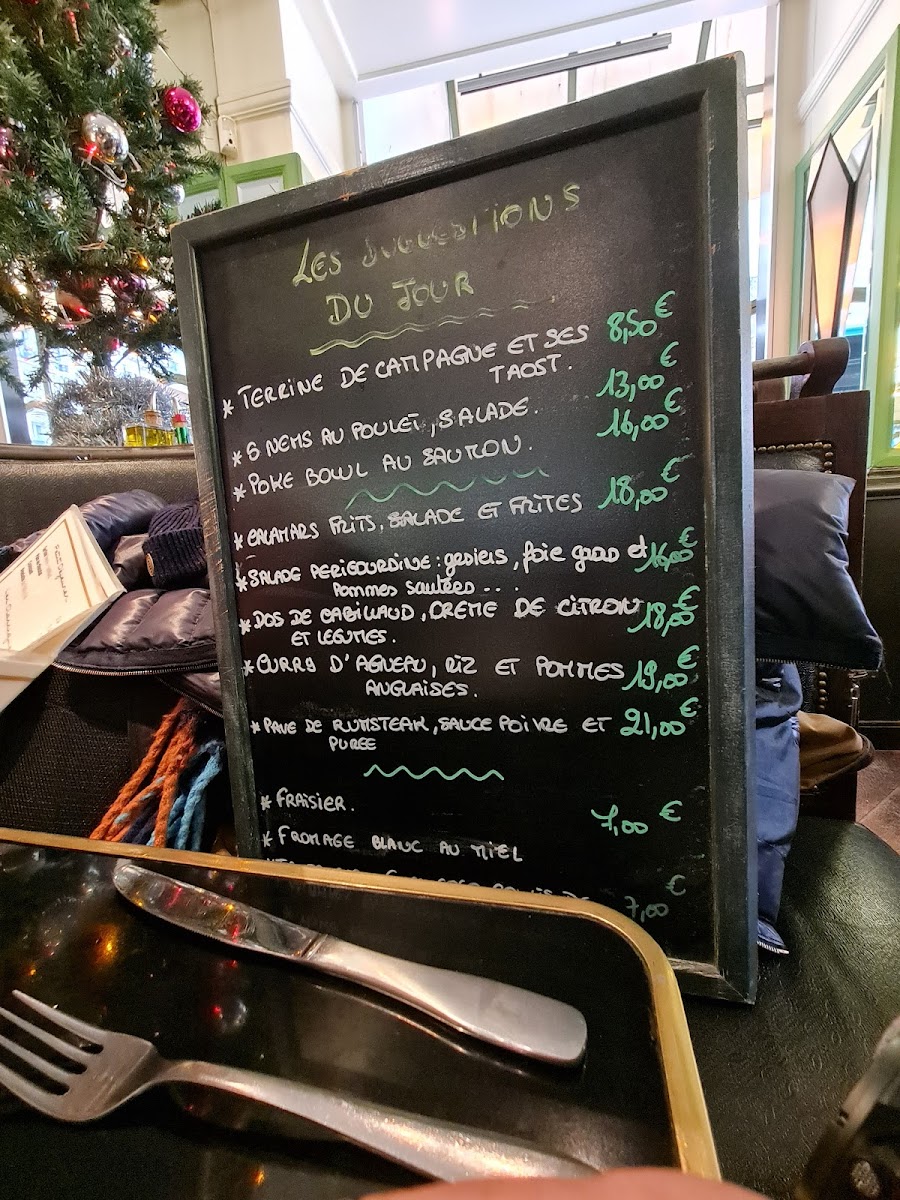 LES SUGGESTIONS
DU JOUR
* TERRINE DE CAMPAGNE ET SES 8,50€
TAOST.
* 5 NEMS AU POULET, SALADE. 13,00€
* POKE BOWL AU SAUMON. 16,00€
* CALAMARS FRITS, SALADE ET FRITES 18,00€
* SALADE PERIGOURDINE : gesiers, foie gras et 16,00€
Pommes sautées...
* DOS DE CABILLAUD, CREME DE CITRON 18,00€
ET LEGUMES.
* CURRY D'AGNEAU, RIZ ET POMMES 19,00€
ANGLAISES.
* PAVE DE RUMSTEAK, SAUCE POIVRE ET 21,00€
PUREE
* FRAISIER. 7,00€
* FROMAGE BLANC AU MIEL
7,00€